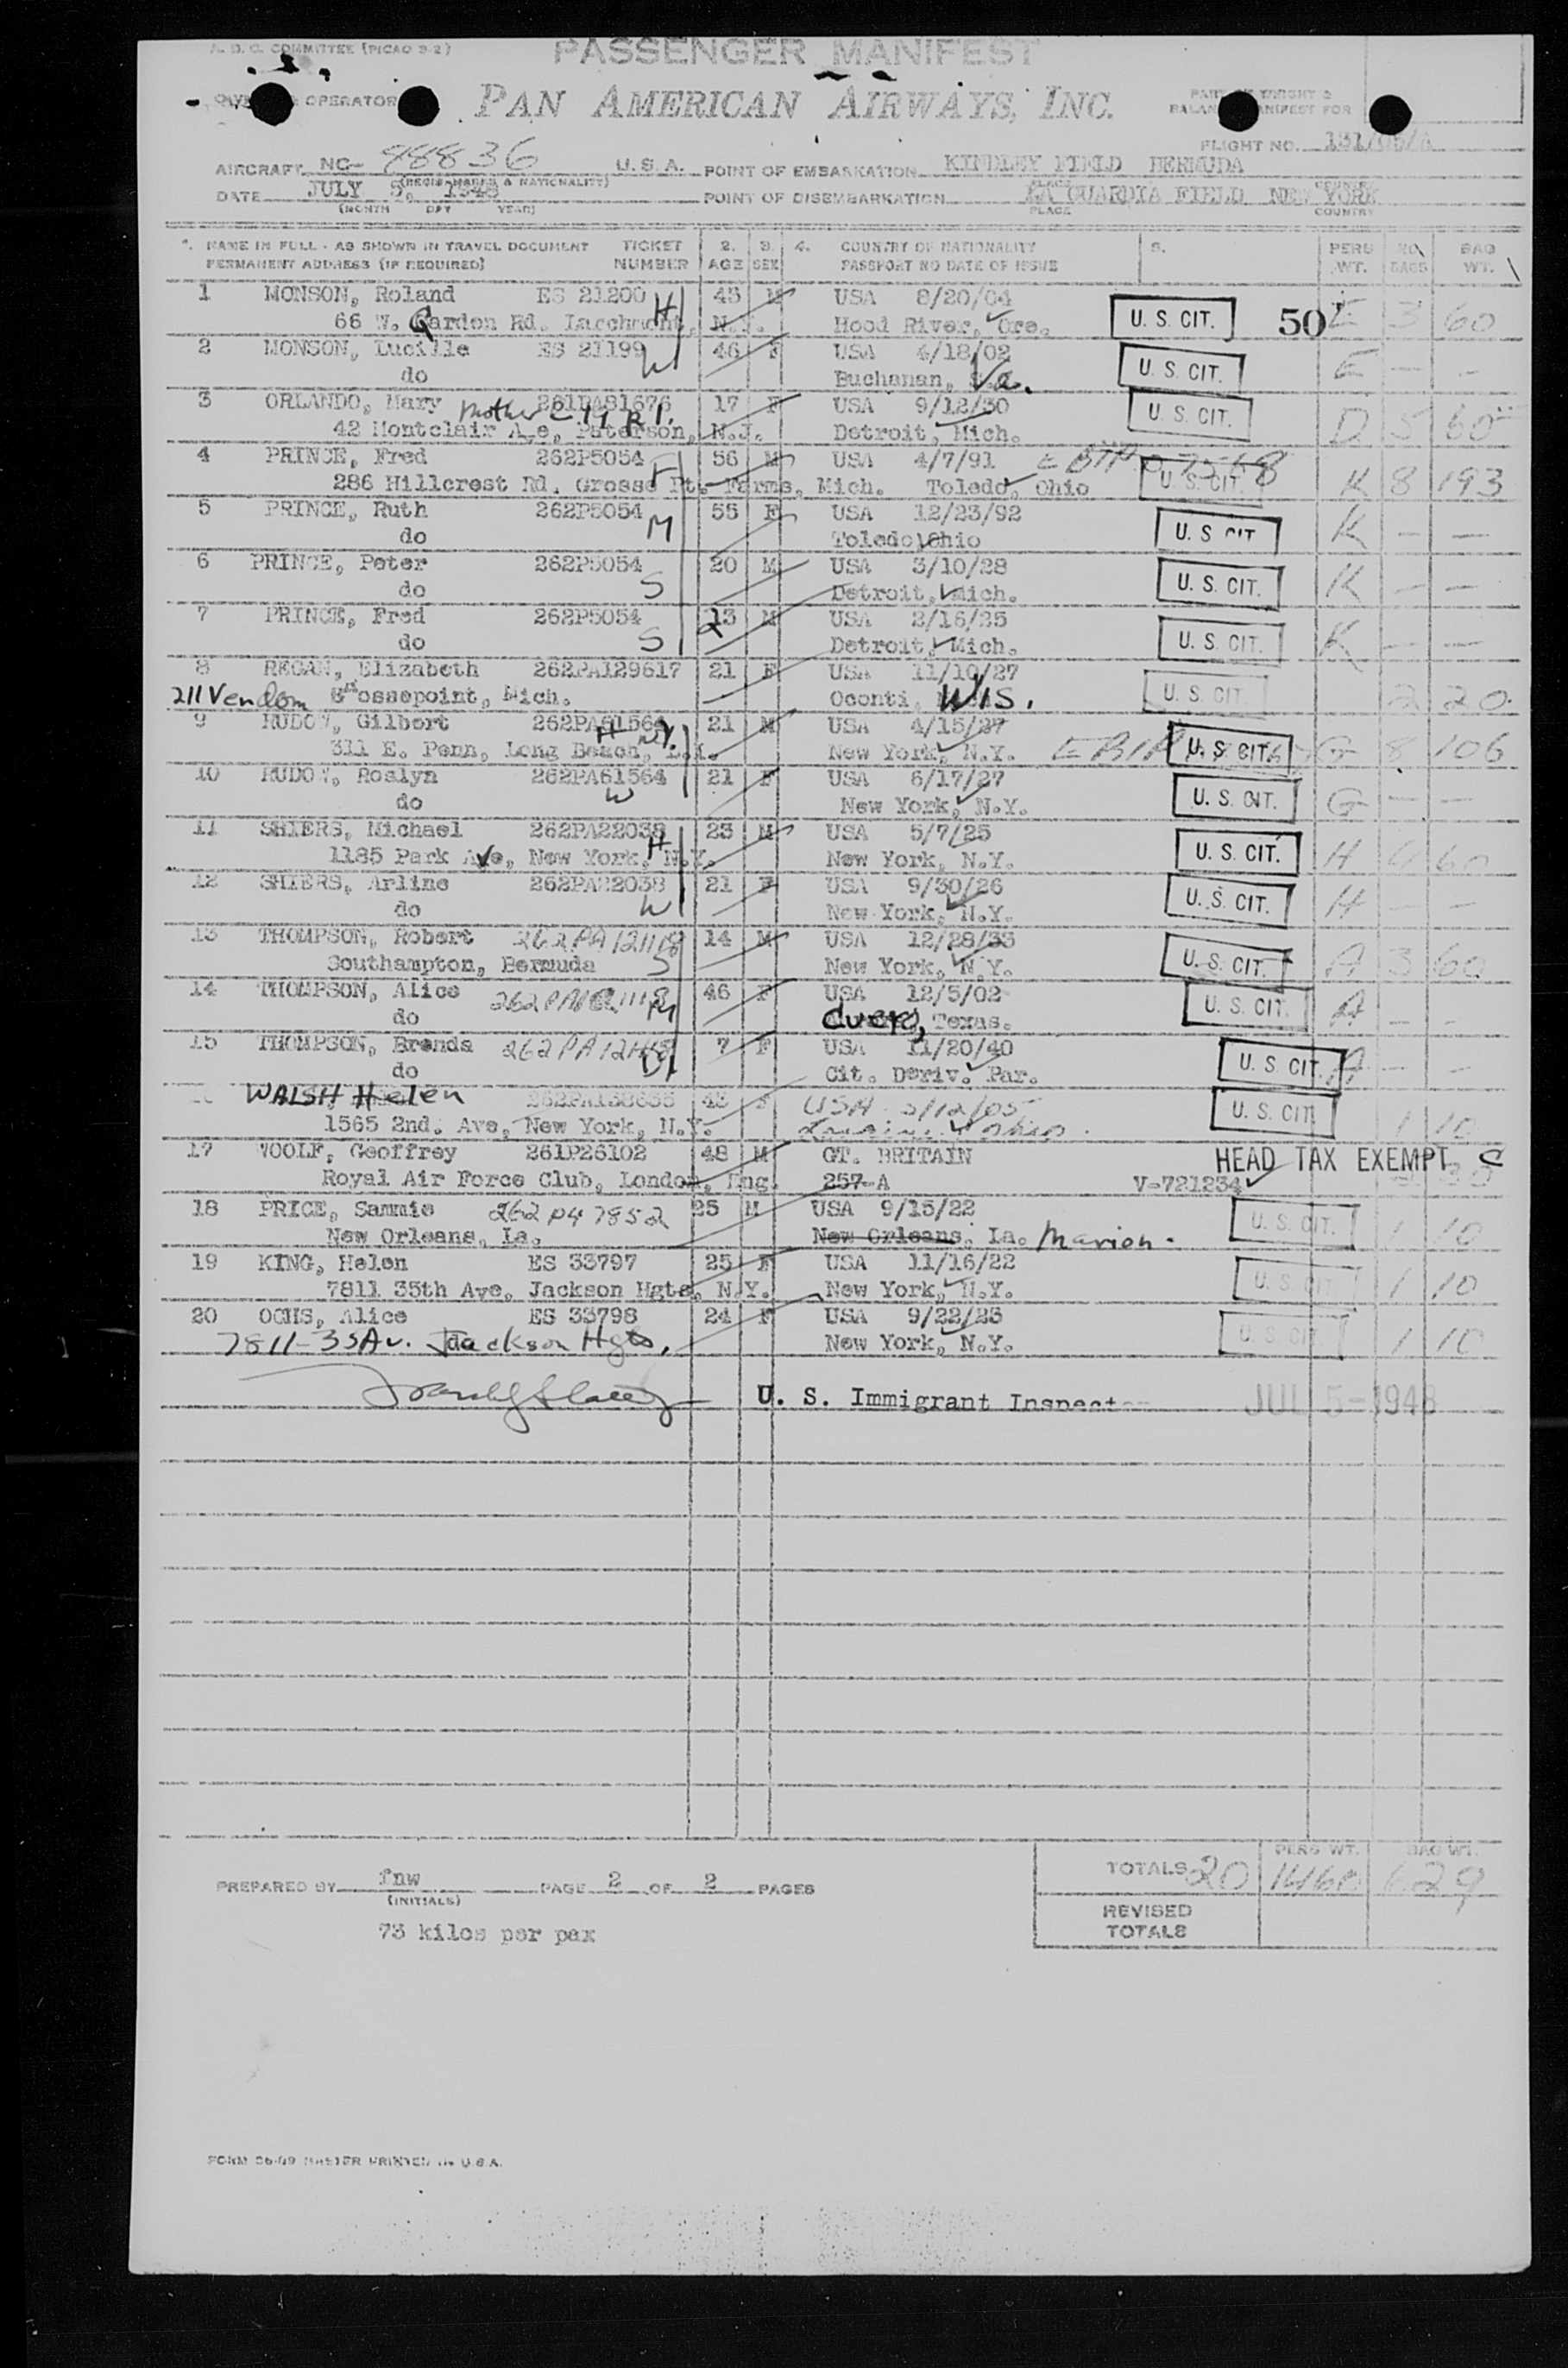 A. D. C. COMMITTEE (PICAO 9-2)
PASSENGER MANIFEST
OPERATOR PAN AMERICAN AIRWAYS, INC.
FLIGHT NO. 131/05/A
AIRCRAFT NC- 88836 U.S.A. POINT OF EMBARKATION KINDLEY FIELD BERMUDA
(REGIS. MARKS & NATIONALITY) PLACE
DATE JULY 5, 1948 POINT OF DISEMBARKATION LA GUARDIA FIELD NEW YORK
(MONTH DAY YEAR) PLACE COUNTRY
NAME IN FULL - AS SHOWN IN TRAVEL DOCUMENT TICKET 2. 3. 4. COUNTRY OF NATIONALITY 5. PERS NO. BAG
PERMANENT ADDRESS (IF REQUIRED) NUMBER AGE SEX PASSPORT NO DATE OF ISSUE WT. BAGS WT.
1 MONSON, Roland ES 21200 H 43 M USA 8/20/04
66 W. Garden Rd. Larchmont, N.Y. Hood River, Ore. U. S. CIT. 50 E 3 60
2 MONSON, Lucille ES 21199 W 46 F USA 4/18/02
do Buchanan, Va. U. S. CIT. E - -
3 ORLANDO, Mary 261PA81676 17 F USA 9/12/30
42 Montclair Ave, Paterson, N.J. Detroit, Mich. U. S. CIT. D 5 60
4 PRINCE, Fred 262P5054 56 M USA 4/7/91
286 Hillcrest Rd. Grosse Pt. Farms, Mich. Toledo, Ohio U. S. CIT. K 8 193
5 PRINCE, Ruth 262P5054 M 55 F USA 12/23/92
do Toledo Ohio U. S CIT K - -
6 PRINCE, Peter 262P5054 20 M USA 3/10/28
do S Detroit, Mich. U. S. CIT. K - -
7 PRINCE, Fred 262P5054 23 M USA 2/16/25
do S Detroit, Mich. U. S. CIT. K - -
8 REGAN, Elizabeth 262PA129617 21 F USA 11/10/27
211 Vendom Grossepoint, Mich. Oconti, WIS. U. S. CIT 2 20
9 RUDOW, Gilbert 262PA61564 21 M USA 4/15/27
311 E. Penn, Long Beach, L.I. New York, N.Y. U. S. CIT. G 8 106
10 RUDOW, Roslyn 262PA61564 21 F USA 6/17/27
do W New York, N.Y. U. S. CIT. G - -
11 SHIERS, Michael 262PA22038 23 M USA 5/7/25
1185 Park Ave, New York, N.Y. H New York, N.Y. U. S. CIT. H 4 60
12 SHIERS, Arline 262PA22038 21 F USA 9/30/26
do W New York, N.Y. U. S. CIT. H - -
13 THOMPSON, Robert 262PA121118 14 M USA 12/28/33
Southampton, Bermuda S New York, N.Y. U. S. CIT. A 3 60
14 THOMPSON, Alice 262PA121118 M 46 F USA 12/5/02
do Cuero, Texas. U. S. CIT. A - -
15 THOMPSON, Brenda 262PA121118 7 F USA 11/20/40
do Cit. Deriv. Par. U. S. CIT. A - -
WALSH Helen 43 F USA 3/12/05
1565 2nd. Ave, New York, N.Y. U. S. CIT 1 10
17 WOOLF, Geoffrey 261P26102 48 M GT. BRITAIN HEAD TAX EXEMPT C
Royal Air Force Club, London, Eng. 257-A V-721234
18 PRICE, Sammie 262P47852 25 M USA 9/15/22
New Orleans, La. New Orleans, La. Marion. U. S. CIT. 1 10
19 KING, Helen ES 33797 25 F USA 11/16/22
7811 35th Ave, Jackson Hgts, N.Y. New York, N.Y. U. S. CIT 1 10
20 OCHS, Alice ES 33798 24 F USA 9/22/23
7811-35Av. Jackson Hgts, New York, N.Y. U. S. CIT. 1 10
U. S. Immigrant Inspect JUL 5- 1948
PERS WT. BAG WT.
TOTALS 20 1460 629
PREPARED BY fnw PAGE 2 OF 2 PAGES
(INITIALS)
REVISED
TOTALS
73 kilos per pax
FORM 26-09 MASTER PRINTED IN U.S.A.